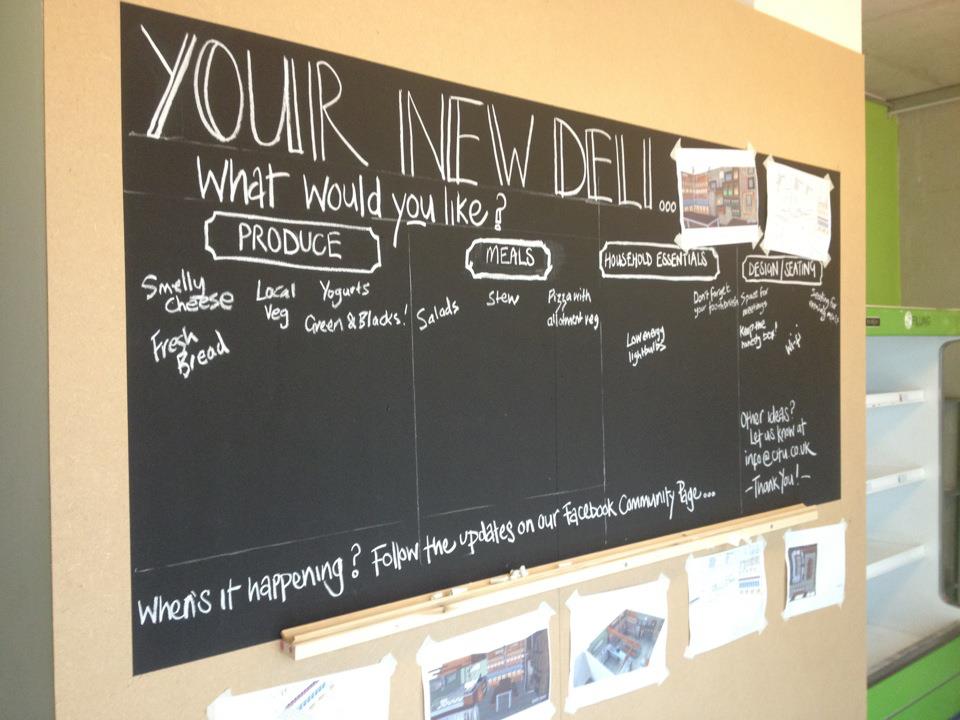 YOUR NEW DELI...
What would you like?
PRODUCE
Smelly
Cheese
Local
Veg
Yogurts
Green & Blacks!
Fresh
Bread
MEALS
Salads
Stew
Pizza with
allotment veg
HOUSEHOLD ESSENTIALS
Don't forget
your
Low energy
lightbulbs
DESIGN/SEATING
Space for
meetings
Seating for
Keep the
honesty box!
Wi-fi
Other ideas?
Let us know at
info@utu.co.uk
-Thank You!-
When's it happening? Follow the updates on our Facebook Community Page...